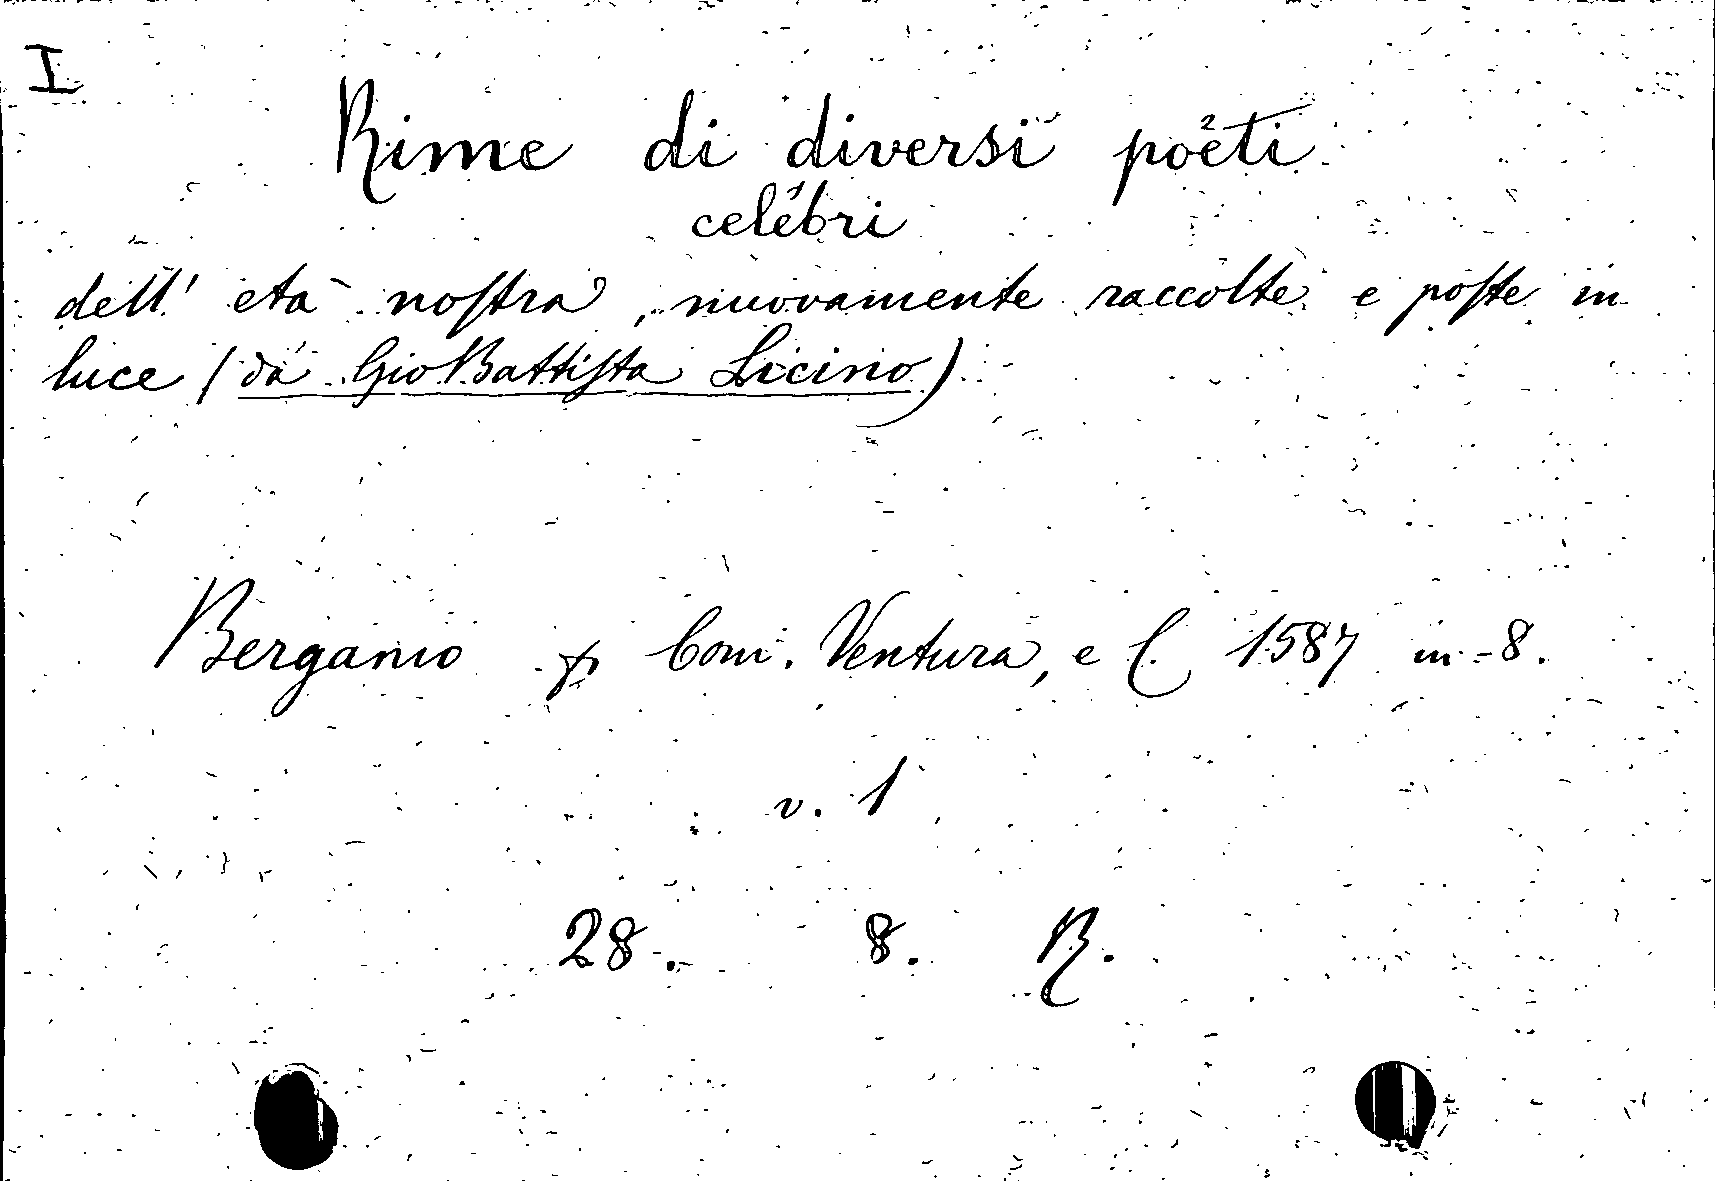 I
Rime di diversi poëti
celebri
dell' età nostra, nuovamente raccolte e poste in
luce (da Gio Battista Licinio)
Bergamo p Com. Ventura, e C. 1587 in-8.
v. 1
28. 8. R.